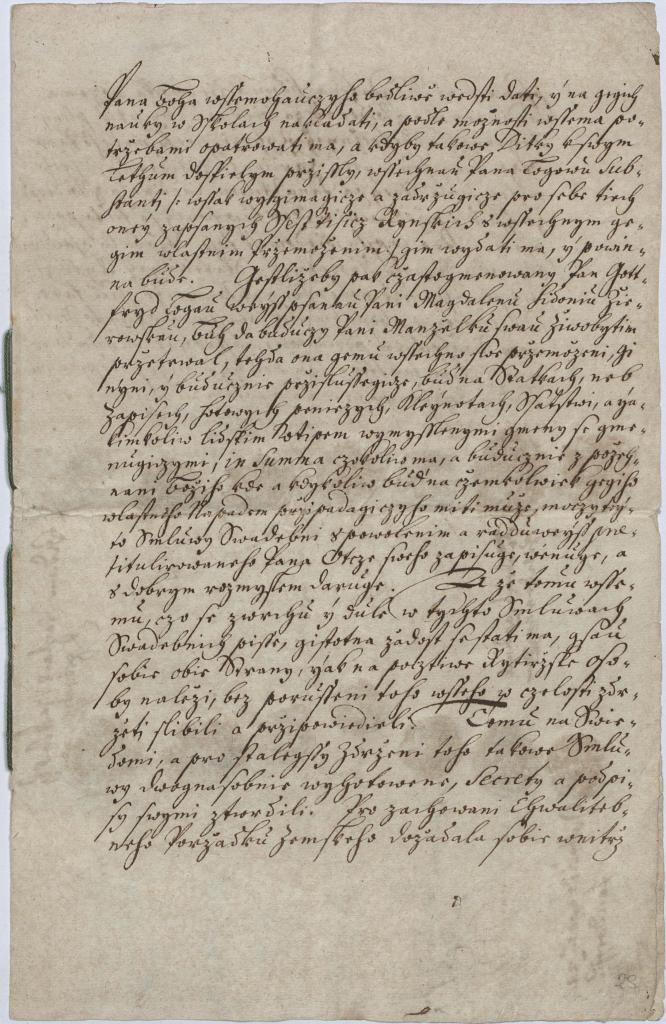 Pana Boha wssemohauczyho bedliwě wedsti dati, y na gegich
nauky w Sskolach nakladati, a podle możnosti wssema po-
trżebami opatrowati ma, a kdyby takowe Ditky k swym
Lethům dospielym przissly, wssechnau Pana Togowu Sub-
stanti /: wssak wygimagicze a zadrżugicze pro sebe tiech
oněy zapsanych Ssest Tisicz Rynskich s wssechnym ge-
gim wlastnim Przemożenim :/ gim wydati ma, y powin-
na bude. Gestliżeby pak czastogmenowany Pan Gott-
fryd Togau weyss psanau Pani Magdalenu Sidonii
rowskau, Buh da buduczy Pani Manżelku swau żiwobytim
prżetrwal, tehda ona gemu wssechno swe prżemożeni, gi
nyni, y buducznie prżislussegicze, bud na Statkach, neb
Zapisech, hotowych peniezych, Kleynotach, Ssatstwi, a ya-
kimkoliw lidskim Wtipem wymysslenymi gmeny se gme-
nugiczymi, in Summa czokoliw ma, a buducznie z pożeh-
nani Bożiho kde a kdykoliw bud na czemkolwiek gegiho
wlastniho Napadem prżipadagiczyho miti muże, moczy tey-
to Smluwy Swadebni s powolenim a raddu weyss
titulirowaneho Pana Otcze sweho zapisuge, wenuge, a
s dobrym rozmyslem daruge. A że tomu wsse-
mu, czo se zwrchu y dule w tychto Smluwach
Swadebnich pisse, gistotna żadost se stati ma, gsau
sobie obie Strany, yak na pocztiwe Rytirżske Oso-
by należi, bez porusseni toho wsseho w czelosti zdr-
żeti slibili a prżipowiedieli. Tomu na Swie-
domi, a pro stalegssy Zdrżeni toho takowe Smlu-
wy dwognasobnie wyhotowene, Secrety a podpi-
sy swymi ztwrdili. Pro zachowani Chwaliteb-
neho Porżadku Zemskeho dożadala sobie wnitrż
28